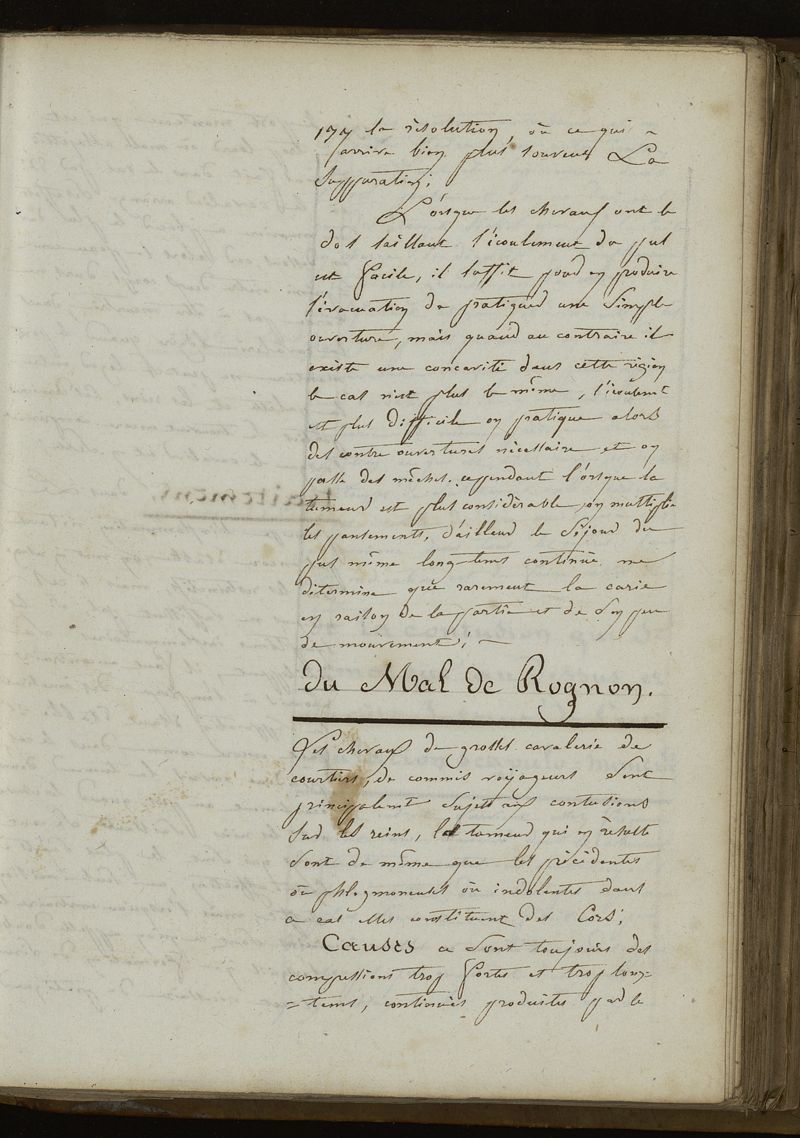 177 la résolution, où ce qui
arrive bien plus souvent La
Suppuration;
L'orsque les chevaux ont le
dos saillant l'écoulement du pus
est facile, il suffit pour en produire
l'évacuation de pratiquer une Simple
ouverture, mais quand au contraire il
existe une concavité dans cette région
le cas n'est plus le même, l'écoulemt
est plus difficile on pratique alors
des contre ouvertures nécessaire et on
passe des mêches. cependant l'orsque la
tumeur est plus considérable on multiplie
les pansements, d'ailleur le Séjour du
pus même long-tems continué ne
détermine que rarement la carie
en raison de la partie et de Son peu
de mouvement;
du Mal de Rognon.
Les chevaux de grosses cavalerie de
courtiers, de commis voyageurs Sont
principalemt Sujett aux contusions
Sur les reins, les tumeur qui en résulte
Sont de même que les précédentes
où phlegmoneuses où indolentes dans
ce cas elles constituent des Cors;
Causes ce Sont toujours des
compressions trop fortes et trop long=
=tems, continués produites par le
Traitement